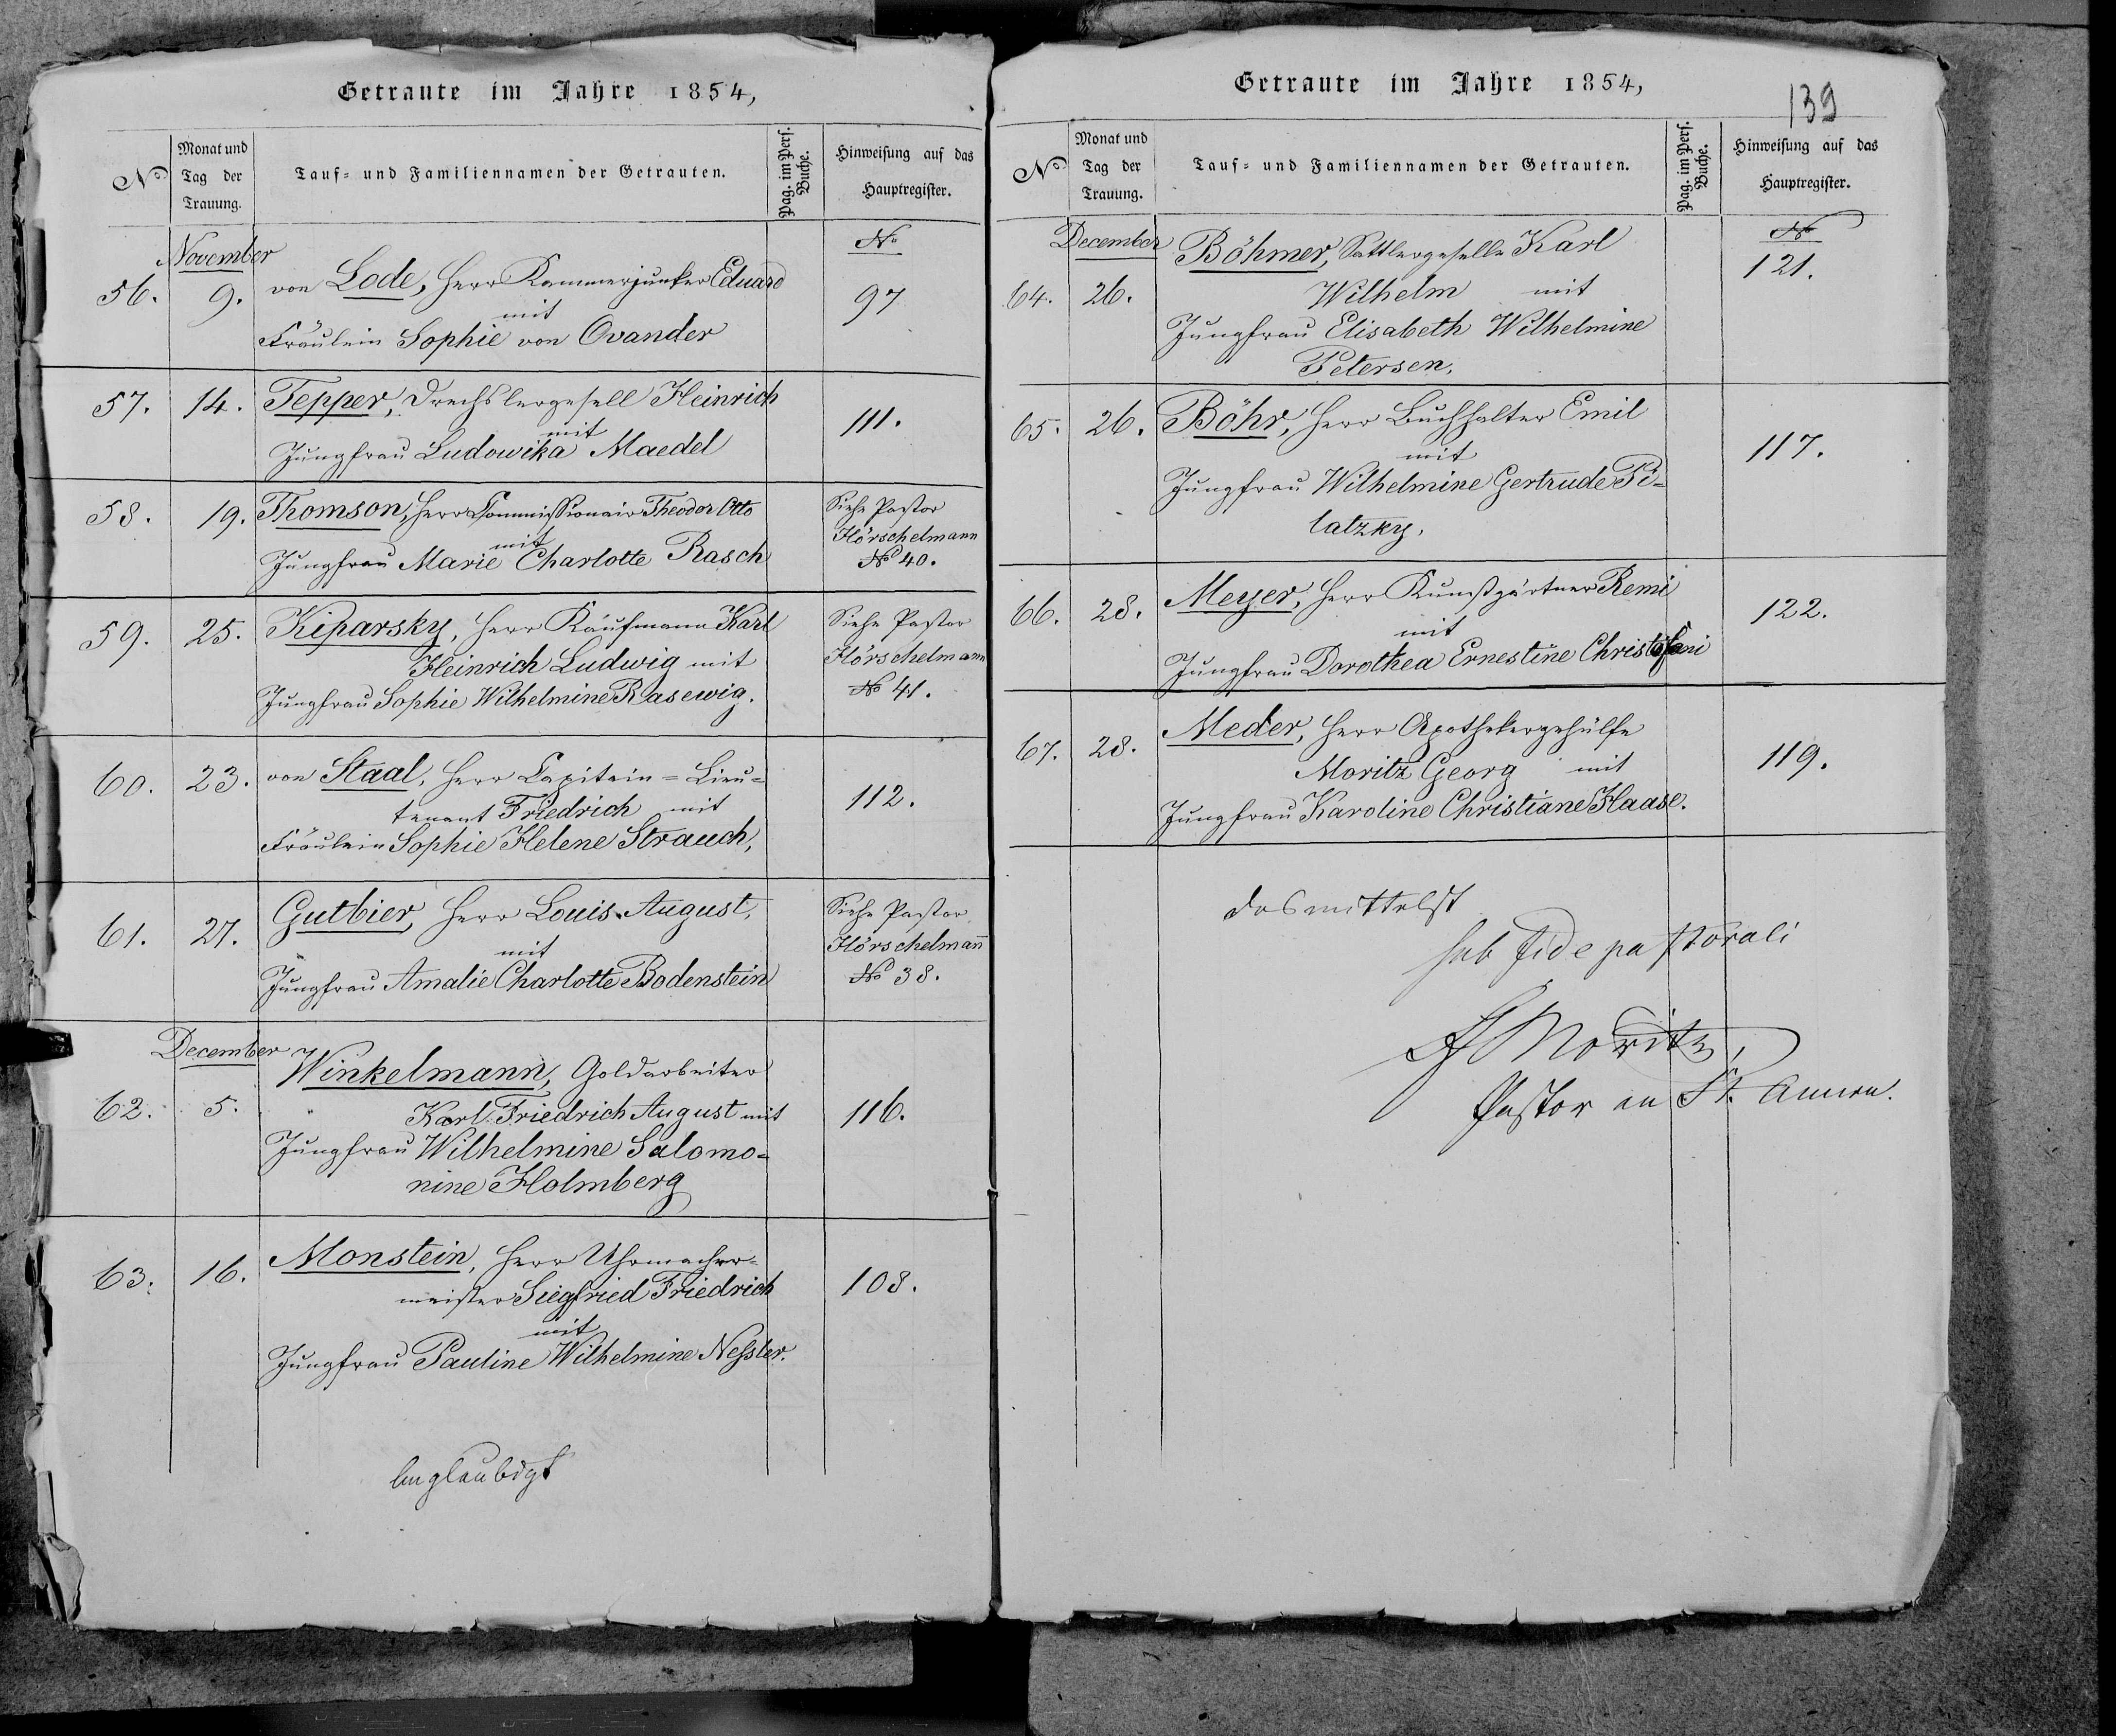 Getraute im Jahre 1854,
No
Monat und
Tag der
Trauung.
Tauf- und Familiennamen der Getrauten.
Pag. im Pers.
Buche.
Hinweisung auf das
Hauptregister.
November
No
56. 9. von Lode, Herr Kammerjunker Eduard
mit
Fräulein Sophie von Ovander
97
57. 14. Tepper, Drechslergesell Heinrich
mit
Jungfrau Ludowika Maedel
111.
58. 19. Thomson, Herr Commissionair Theodor Otto
mit
Jungfrau Marie Charlotte Rasch
Siehe Pastor
Hörschelmann
No 40.
59. 25. Kiparsky, Herr Kaufmann Karl
Heinrich Ludwig mit
Jungfrau Sophie Wilhelmine Rasewig.
Siehe Pastor
Hörschelmann
No 41.
60. 23. von Staal, Herr Capitain-Lieu-
tenant Friedrich mit
Fräulein Sophie Helene Strauch,
112.
61. 27. Gutbier, Herr Louis August,
mit
Jungfrau Amalie Charlotte Bodenstein
Siehe Pastor
Hörschelmañ
No 38.
December
62. 5. Winkelmann, Goldarbeiter
Karl Friedrich August mit
Jungfrau Wilhelmine Salomo-
nine Holmberg
116.
63. 16. Monstein, Herr Uhrmacher-
meister Siegfried Friedrich
mit
Jungfrau Pauline Wilhelmine Neßler.
108.
beglaubigt
Getraute im Jahre 1854,
139
No
Monat und
Tag der
Trauung.
Tauf- und Familiennamen der Getrauten.
Pag. im Pers.
Buche.
Hinweisung auf das
Hauptregister.
December
No
64. 26. Böhmer, Sattlergeselle Karl
Wilhelm mit
Jungfrau Elisabeth Wilhelmine
Petersen.
121.
65. 26. Böhr, Herr Buchhalter Emil
mit
Jungfrau Wilhelmine Gertrude Pi-
latzky.
117.
66. 28. Meyer, Herr Kunstgärtner Remi
mit
Jungfrau Dorothea Ernestine Christofani
122.
67. 28. Meder, Herr Apothekergehülfe
Moritz Georg mit
Jungfrau Karoline Christiane Haase.
119.
desmittelst
sub fide pastorali
Moritz,
Pastor an St. Annen.